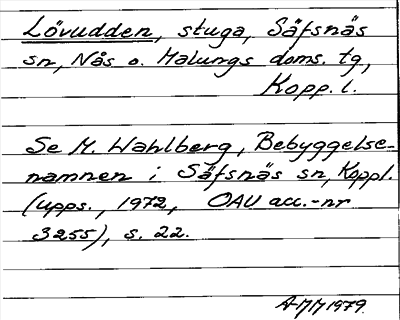 Lövudden, stuga, Säfsnäs
sn, Nås o. Malungs doms. tg,
Kopp. l.
Se M. Wahlberg, Bebyggelse-
namnen i Säfsnäs sn, Koppl.
(upps., 1972, OAU acc.-nr
3255), s. 22.
A-MM 1979.